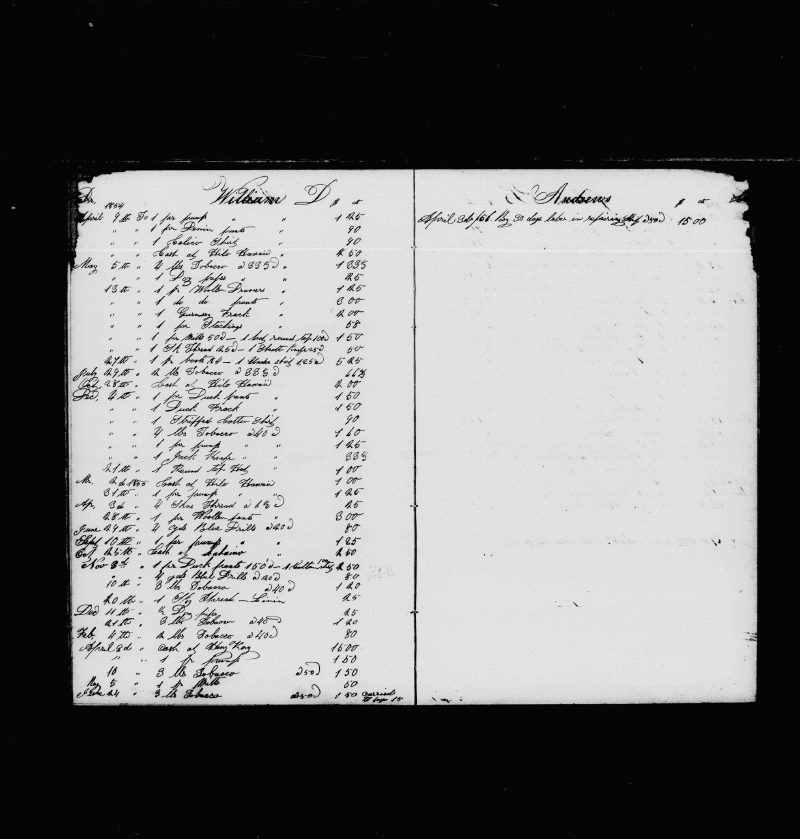 Dr. William D $ ct
1854
April 9th To 1 pr pump " " 1 25
" " 1 pr Denim pants " 90
" " 1 Calico Shirt 90
" " Cash at Hilo Hawaii " 2 50
May 5th " 4 lbs Tobacco a 33 1/3 d " 1 33 1/3
" " 1 Dz pipes " " 25
13th " 1 pr Woollen Drawers " 1 25
" " 1 do do pants " 3 00
" " 1 Gurnsey Frock " 2 00
" " 1 pr Stockings " 58
" " 1 pr Mitts 50d – 1 round top 100d 1 50
" " 1 Sk Thread 25d – 1 Sheath Knife 25d 50
27th " 1 pr boots $4 – 1 shirt 125d 5 25
July 29th " 2 lbs Tobacco a 33 1/3 d 66 2/3
Oct. 28th " Cash at Hilo Hawaii 2 00
Dec, 4th " 1 pr Duck pants " 1 50
" " 1 Duck Frock " 1 50
" " 1 Striped Cotton Shirt 90
" " 4 lbs Tobacco a 40 d 1 60
" " 1 pr pump " " 1 25
" " 1 Jack Knife " " 33 1/3
21th " 1 Round top Hat 1 00
Mr. 2d 1855 Cash at Hilo Hawaii 1 00
31th " 1 pr pump " " 1 25
Apr, 3d " 4 Skns Thread a d 25
28th " 1 pr Woollen pants " 3 00
June 29th " 4 yds Blue Drills a 20d 80
Sept 10th " 1 pr pump " " 1 25
Oct 25th " Cash at Lahaina " 2 50
Nov 8th " 1 pr Duck pants 150d – 1 Cotton Shirt 2 50
" " 4 yds Blue Drills a 20d 80
10th " 3 lbs Tobacco a 40 d 1 20
20th " 1 Thread – 25
Dec 11th " 1/2 Dz pipes 25
21th " 3 lbs Tobacco a 40 d 1 20
Feb, 4th " 2 lbs Tobacco a 40 d 80
April 2d " Cash at Hong Kong 15 00
" " 1 pr pump 1 50
18 " 3 lbs Tobacco a 50d 1 50
May 5 " 1 pr Mitts 50
June 24 " 3 lbs Tobacco a 50d 1 50 Carried
to
Andrews $ ct
April 3d /56 By 30 days labor in repairing ship a 50d 15 00